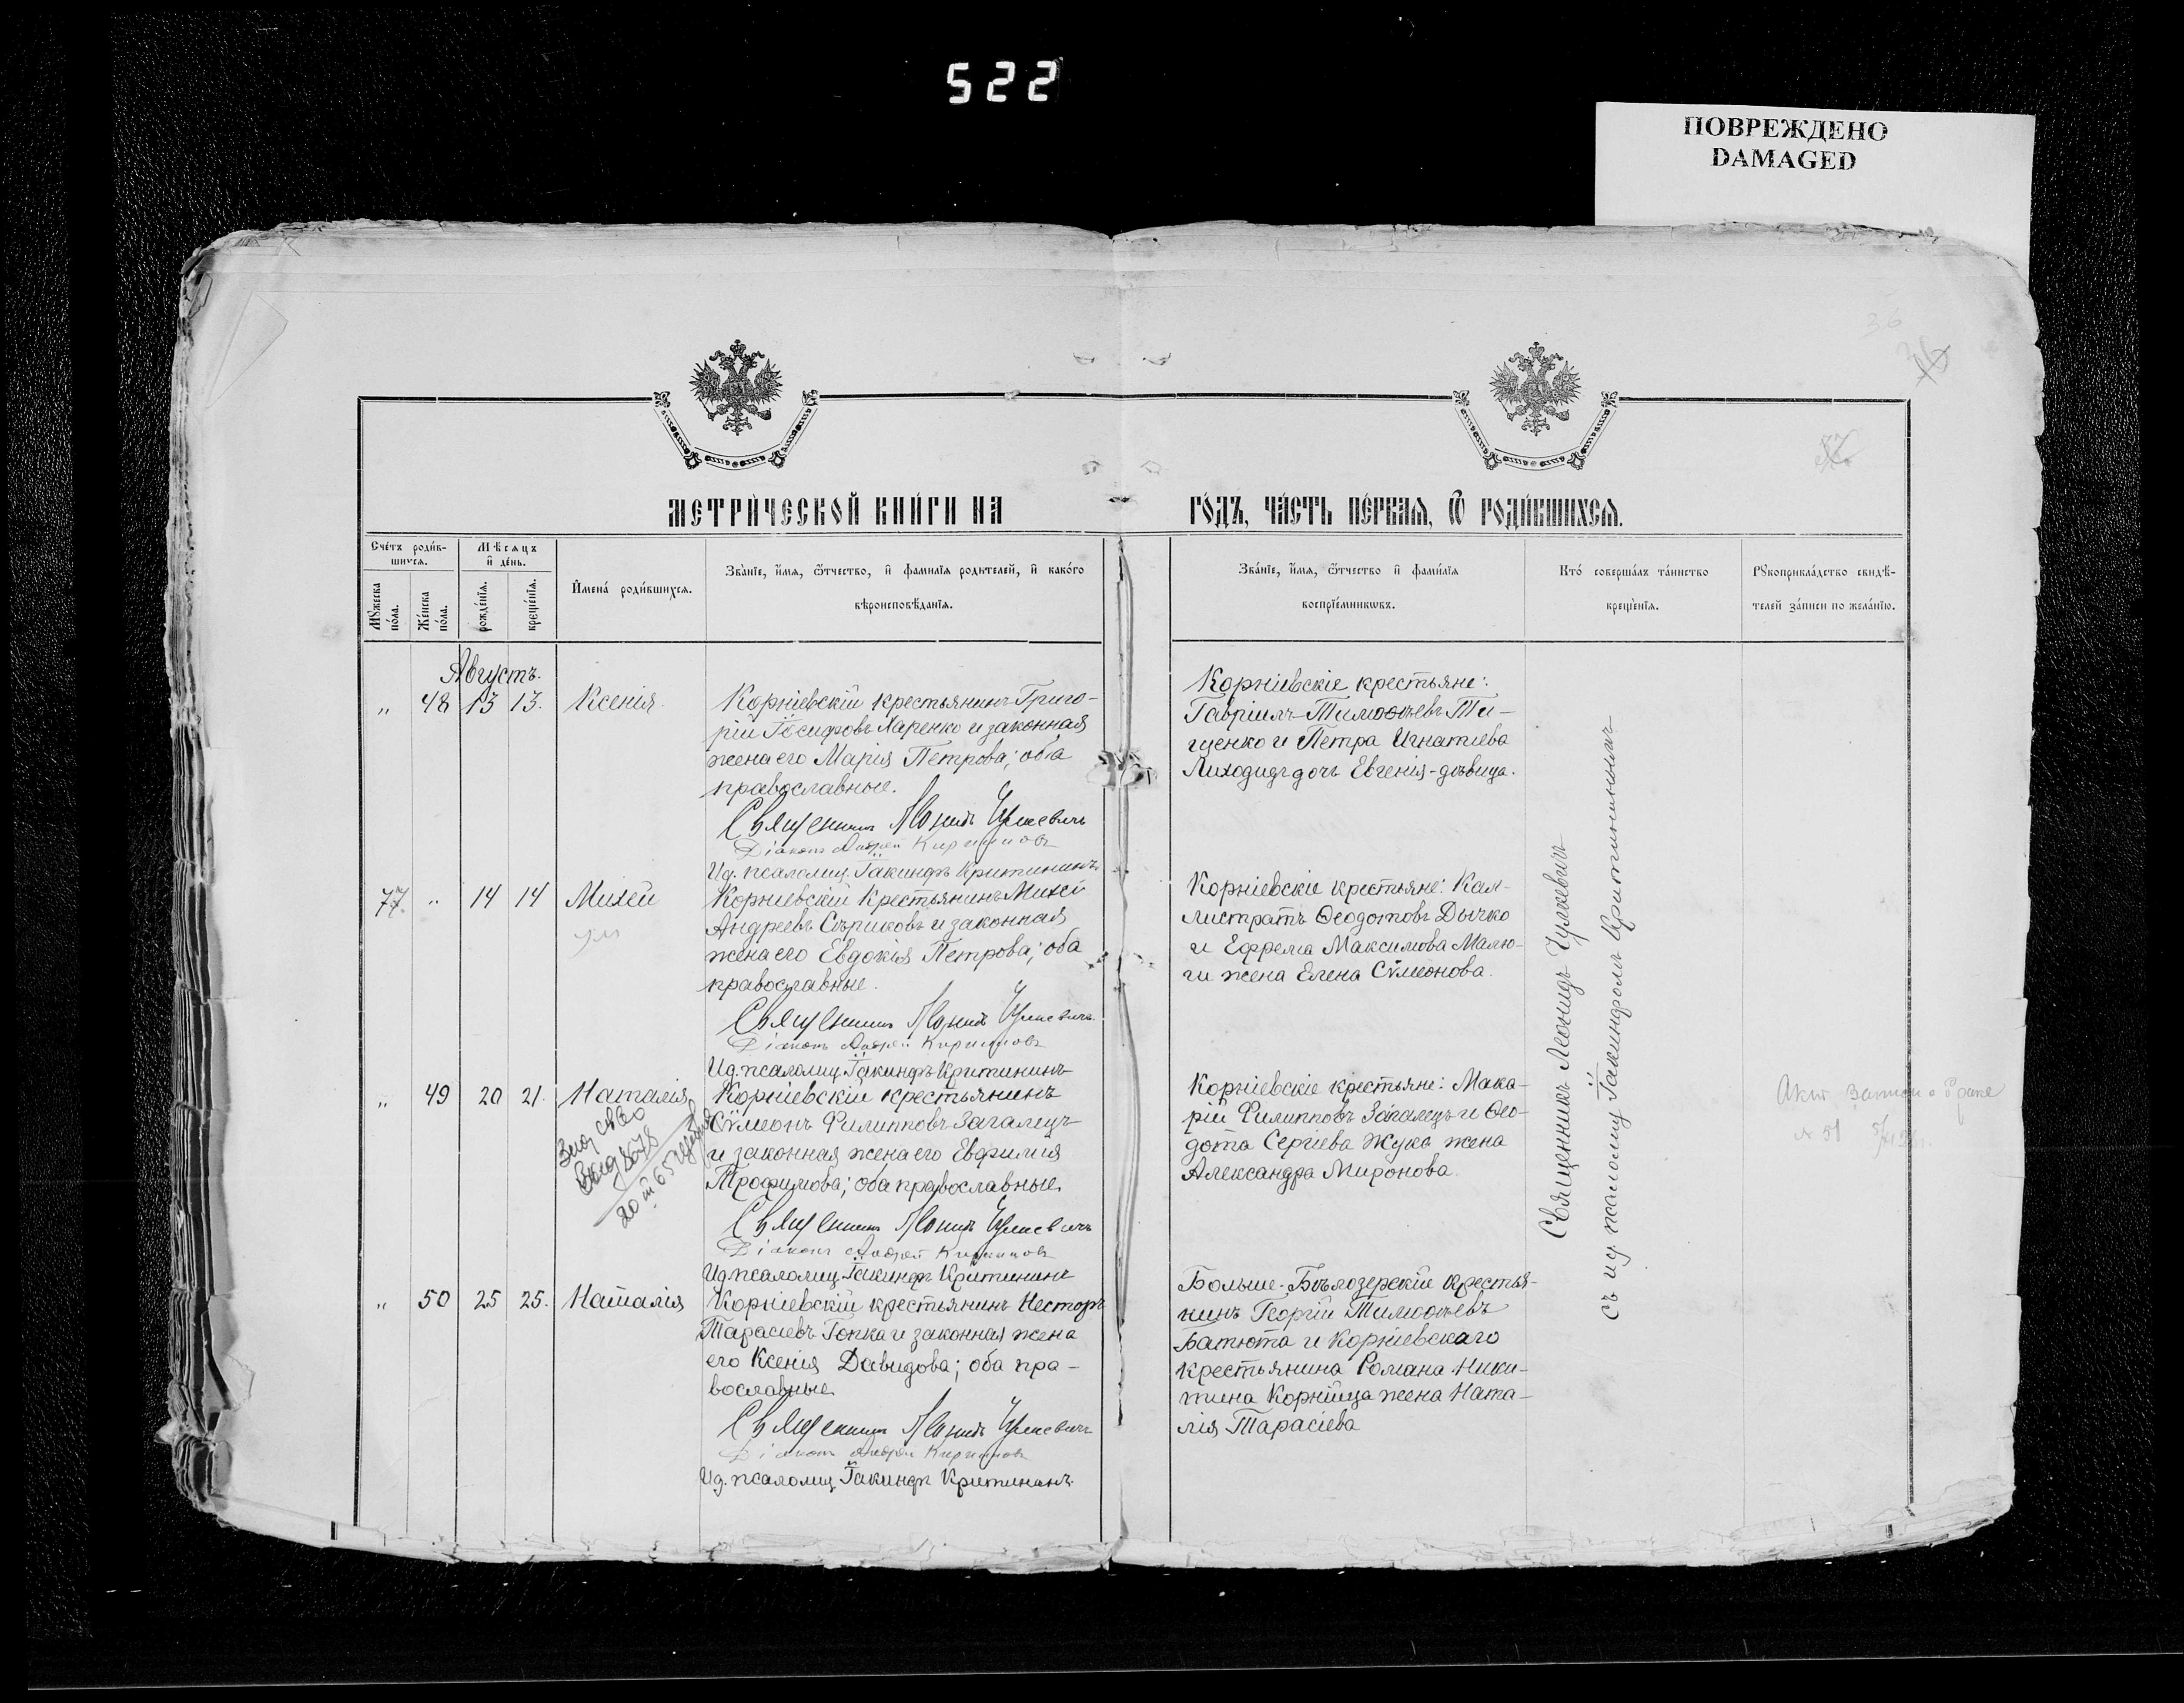 522
ПОВРЕЖДЕНО
DAMAGED
МЕТРИ́ЧЕСКОЙ КНИ́ГИ НА
ГО́ДЪ, ЧА́СТЬ ПЕ́РВАЯ, Ѿ РОДИ́ВШИХСЯ.
Сче́тъ роди́в-
шихся.
Мѣ́сяцъ
и҆ де́нь.
Мꙋ́жеска
по́ла.
Же́нска
по́ла.
рожде́нїя.
креще́нїя.
И҆мена̀ роди́вшихся.
Зва́нїе, и҆́мя, ѻ҆́тчество, и҆ фами́лїя роди́телей, и҆ како́гѡ
вѣроисповѣ́данїя.
Зва́нїе, и҆́мя, ѻ҆́тчество и҆ фами́лїя
воспрїе́мникѡвъ.
Кто̀ соверша́лъ та́инство
креще́нїя.
Рꙋкоприкла́дство свидѣ́-
телей за́писи по жела́нїю.
Августъ.
„ 48 13 13. Ксенія.
Корніевскій крестьянинъ Григо-
рій Іосифовъ Харенко и законная
жена его Марія Петрова; оба
православные.
Священникъ Леонидъ Чулкевичъ
Діаконъ Андрей Кириловъ
И.д. псаломщ. Іакинфъ Критининъ
Корніевскіе крестьяне:
Гавріилъ Тимоѳеевъ Ти-
щенко и Петра Игнатіева
Лиходидъ дочь Евгенія-дѣвица.
77. „ 14 14 Михей
ум
Корніевскій крестьянинъ Михей
Андреевъ Сѣриковъ и законная
жена его Евдокія Петрова; оба
православные.
Священникъ Леонидъ Чулкевичъ.
Діаконъ Андрей Кириловъ
И.д. псаломщ. Іакинфъ Критининъ
Корніевскіе крестьяне: Кал-
листратъ Ѳеодотовъ Дычко
и Ефрема Максимова Малю-
ги жена Елена Сѵмеонова.
„ 49 20 21. Наталія
Корніевскій крестьянинъ
Сѵмеонъ Филипповъ Загалецъ
и законная жена его Евфимія
Трофимова; оба православные.
Священникъ Леонидъ Чулкевичъ
Діаконъ Андрей Кириловъ
И.д. псаломщ. Іакинфъ Критининъ
Корніевскіе крестьяне: Мака-
рій Филипповъ Загалецъ и Ѳео-
дота Сергіева Жука жена
Александра Миронова.
Акт записи о браке
№ 51
„ 50 25 25. Наталія
Корніевскій крестьянинъ Несторъ
Тарасіевъ Гопка и законная жена
его Ксенія Давидова; оба пра-
вославные.
Священникъ Леонидъ Чулкевичъ
Діаконъ Андрей Кириловъ
И.д. псаломщ. Іакинфъ Критининъ.
Больше-Бѣлозерскій крестья-
нинъ Георгій Тимоѳеевъ
Батюта и Корніевскаго
крестьянина Романа Ники-
тина Корнійца жена Ната-
лія Тарасіева
Священникъ Леонидъ Чулкевичъ
съ и.д. псаломщ. Іакинфомъ Критининымъ